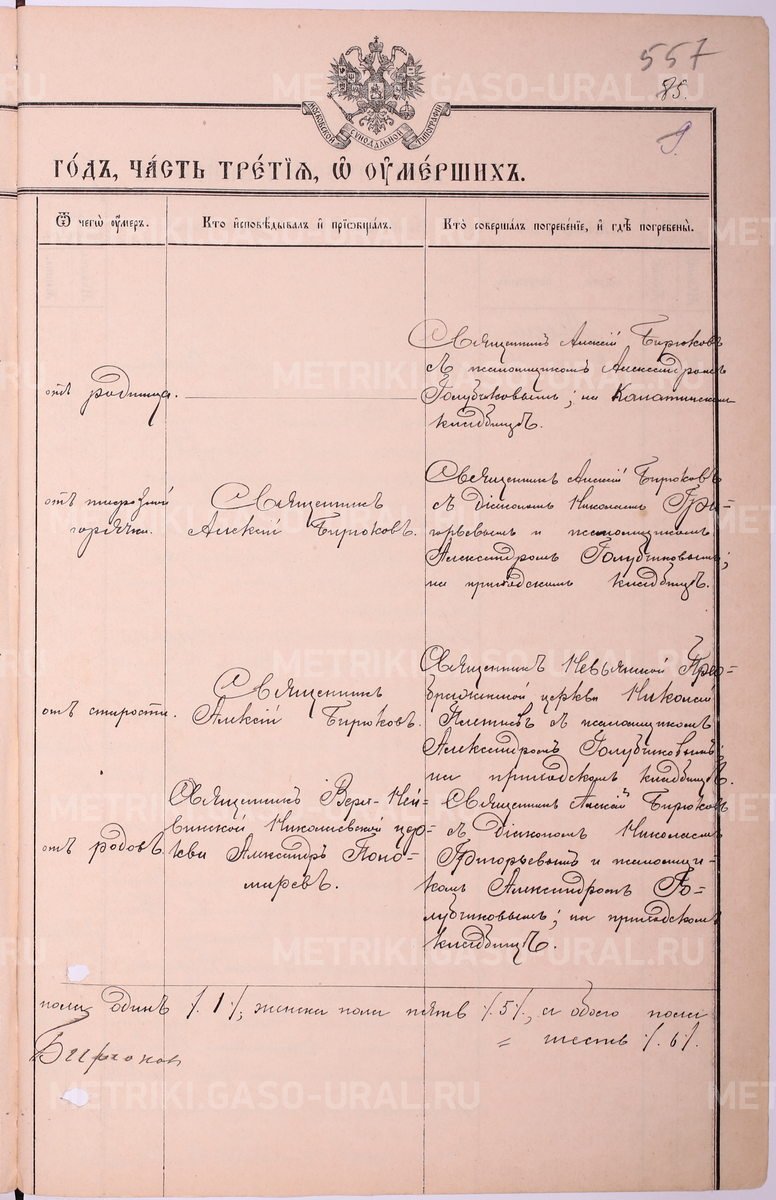 557
85.
9
МОСКОВСКОЙ СѴНОДАЛЬНОЙ ТИПОГРАФІИ
ГОДЪ, ЧАСТЬ ТРЕТІЯ, Ѽ ОУМЕРШИХЪ.
Ѿ чегѡ оумеръ.
Кто исповѣдывалъ и прїѡбщалъ.
Кто совершалъ погребеніе, и гдѣ погребены.
отъ родимца.
Священникъ Алексій Бирюковъ
съ псаломщикомъ Александромъ
Голубчиковымъ; на
кладбищѣ.
отъ
горячки.
Священникъ
Алексій Бирюковъ.
Священникъ Алексій Бирюковъ
съ Діакономъ Николаемъ Гри-
горьевымъ и псаломщикомъ
Александромъ Голубчиковымъ;
на приходскомъ кладбищѣ.
отъ старости.
Священникъ
Алексій Бирюковъ.
Священникъ Невьянской Прео-
браженской церкви Николай
съ псаломщикомъ
Александромъ Голубчиковымъ;
на приходскомъ кладбищѣ.
отъ родовъ.
Священникъ Верхъ-Ней-
винской Николаевской цер-
кви Александръ Поно-
маревъ.
Священникъ Алексій Бирюковъ
съ Діакономъ Николаемъ
Григорьевымъ и псаломщи-
комъ Александромъ Го-
лубчиковымъ; на приходскомъ
кладбищѣ.
пола одинъ /.1/., женска пола пять /.5/., а обоего пола
= шесть /.6/.
Бирюков
METRIKI.GASO-URAL.RU